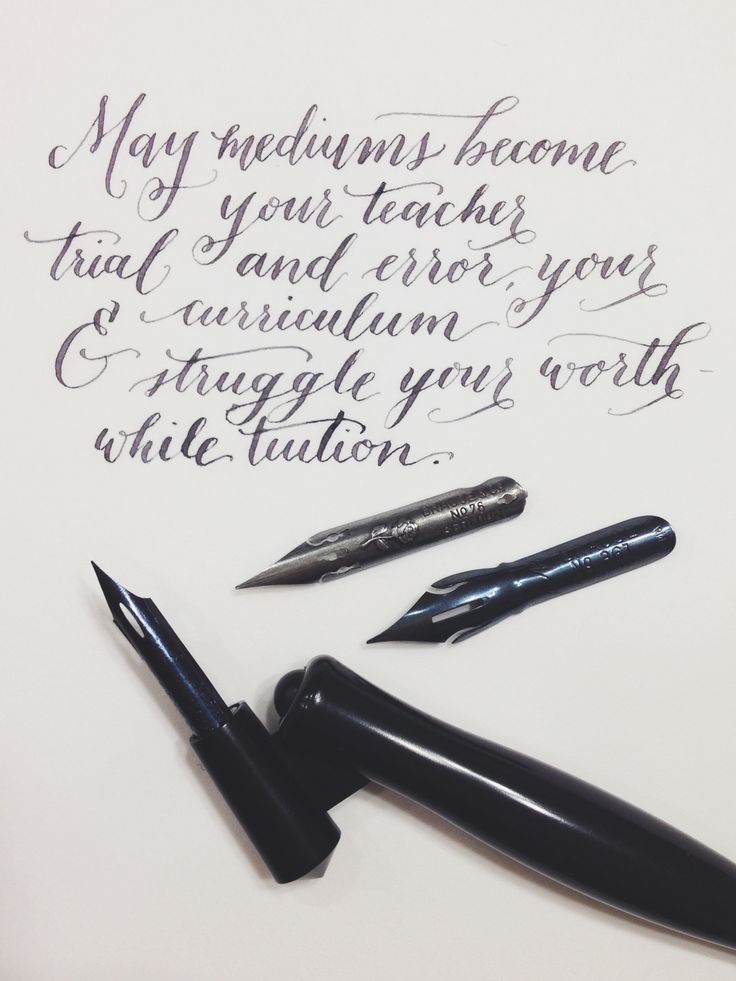 May mediums become
your teacher
trial and error, your
curriculum
& struggle your worth-
while tuition.
BRAUSE & CO
No 76
No 361